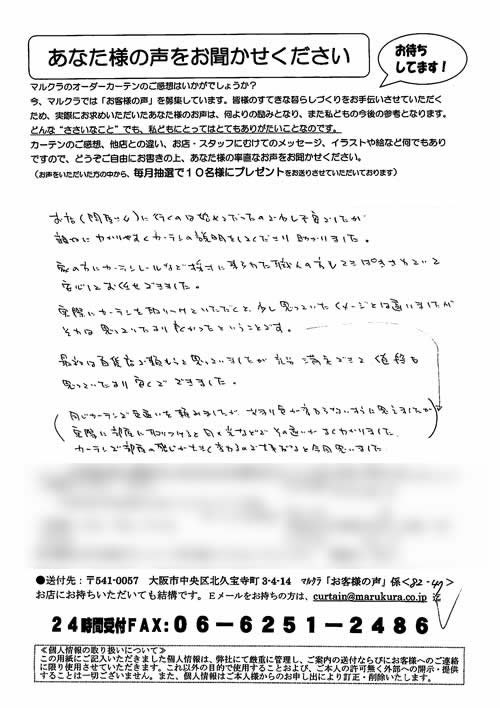 あなた様の声をお聞かせください
お待ち
してます！
マルクラのオーダーカーテンのご感想はいかがでしょうか？
今、マルクラでは「お客様の声」を募集しています。皆様のすてきな暮らしづくりをお手伝いさせていただく
ため、実際にお求めいただいたあなた様のお声は、何よりの励みとなり、また私どもの今後の参考となります。
どんな“ささいなこと”でも、私どもにとってはとてもありがたいことなのです。
カーテンのご感想、他店との違い、お店・スタッフにむけてのメッセージ、イラストや絵など何でもあり
ですので、どうぞご自由にお書きの上、あなた様の率直なお声をお聞かせください。
（お声をいただいた方の中から、毎月抽選で１０名様にプレゼントをお送りさせていただいております）
お店(問屋さん)に行くのは始めてだったので
カーテンの説明をしてくださり助かりました。
家の方にカーテンレールなど
安心してお任せできました。
実際にカーテンを取り付けていただくと、少し思っていたイメージとは違いましたが
それは思っていたより良かったということです。
最初は百貨店で頼もうと思っていましたが 満足できて 値段も
思っていたより安くできました。
(同じカーテンで色違いを頼みましたが、あまり色が変わらないように思えましたが
実際に部屋に取りつけると その違いがよくわかりました。
カーテンで部屋の感じが大きく変わるので 今回思いました)
●送付先：〒541-0057　大阪市中央区北久宝寺町 3-4-14　マルクラ「お客様の声」係<82-47>
お店にお持ちいただいても結構です。Ｅメールをお持ちの方は、curtain@marukura.co.jp 迄
２４時間受付ＦＡＸ：０６－６２５１－２４８６
≪個人情報の取り扱いについて≫
この用紙にご記入いただきました個人情報は、弊社にて厳重に管理し、ご案内の送付ならびにお客様へのご連絡
に限り使用させていただきます。これ以外の目的で使用することおよび、ご本人の許可無く外部への開示・提供
することは一切ございません。また、個人情報はご本人様からのお申し出により訂正・削除いたします。